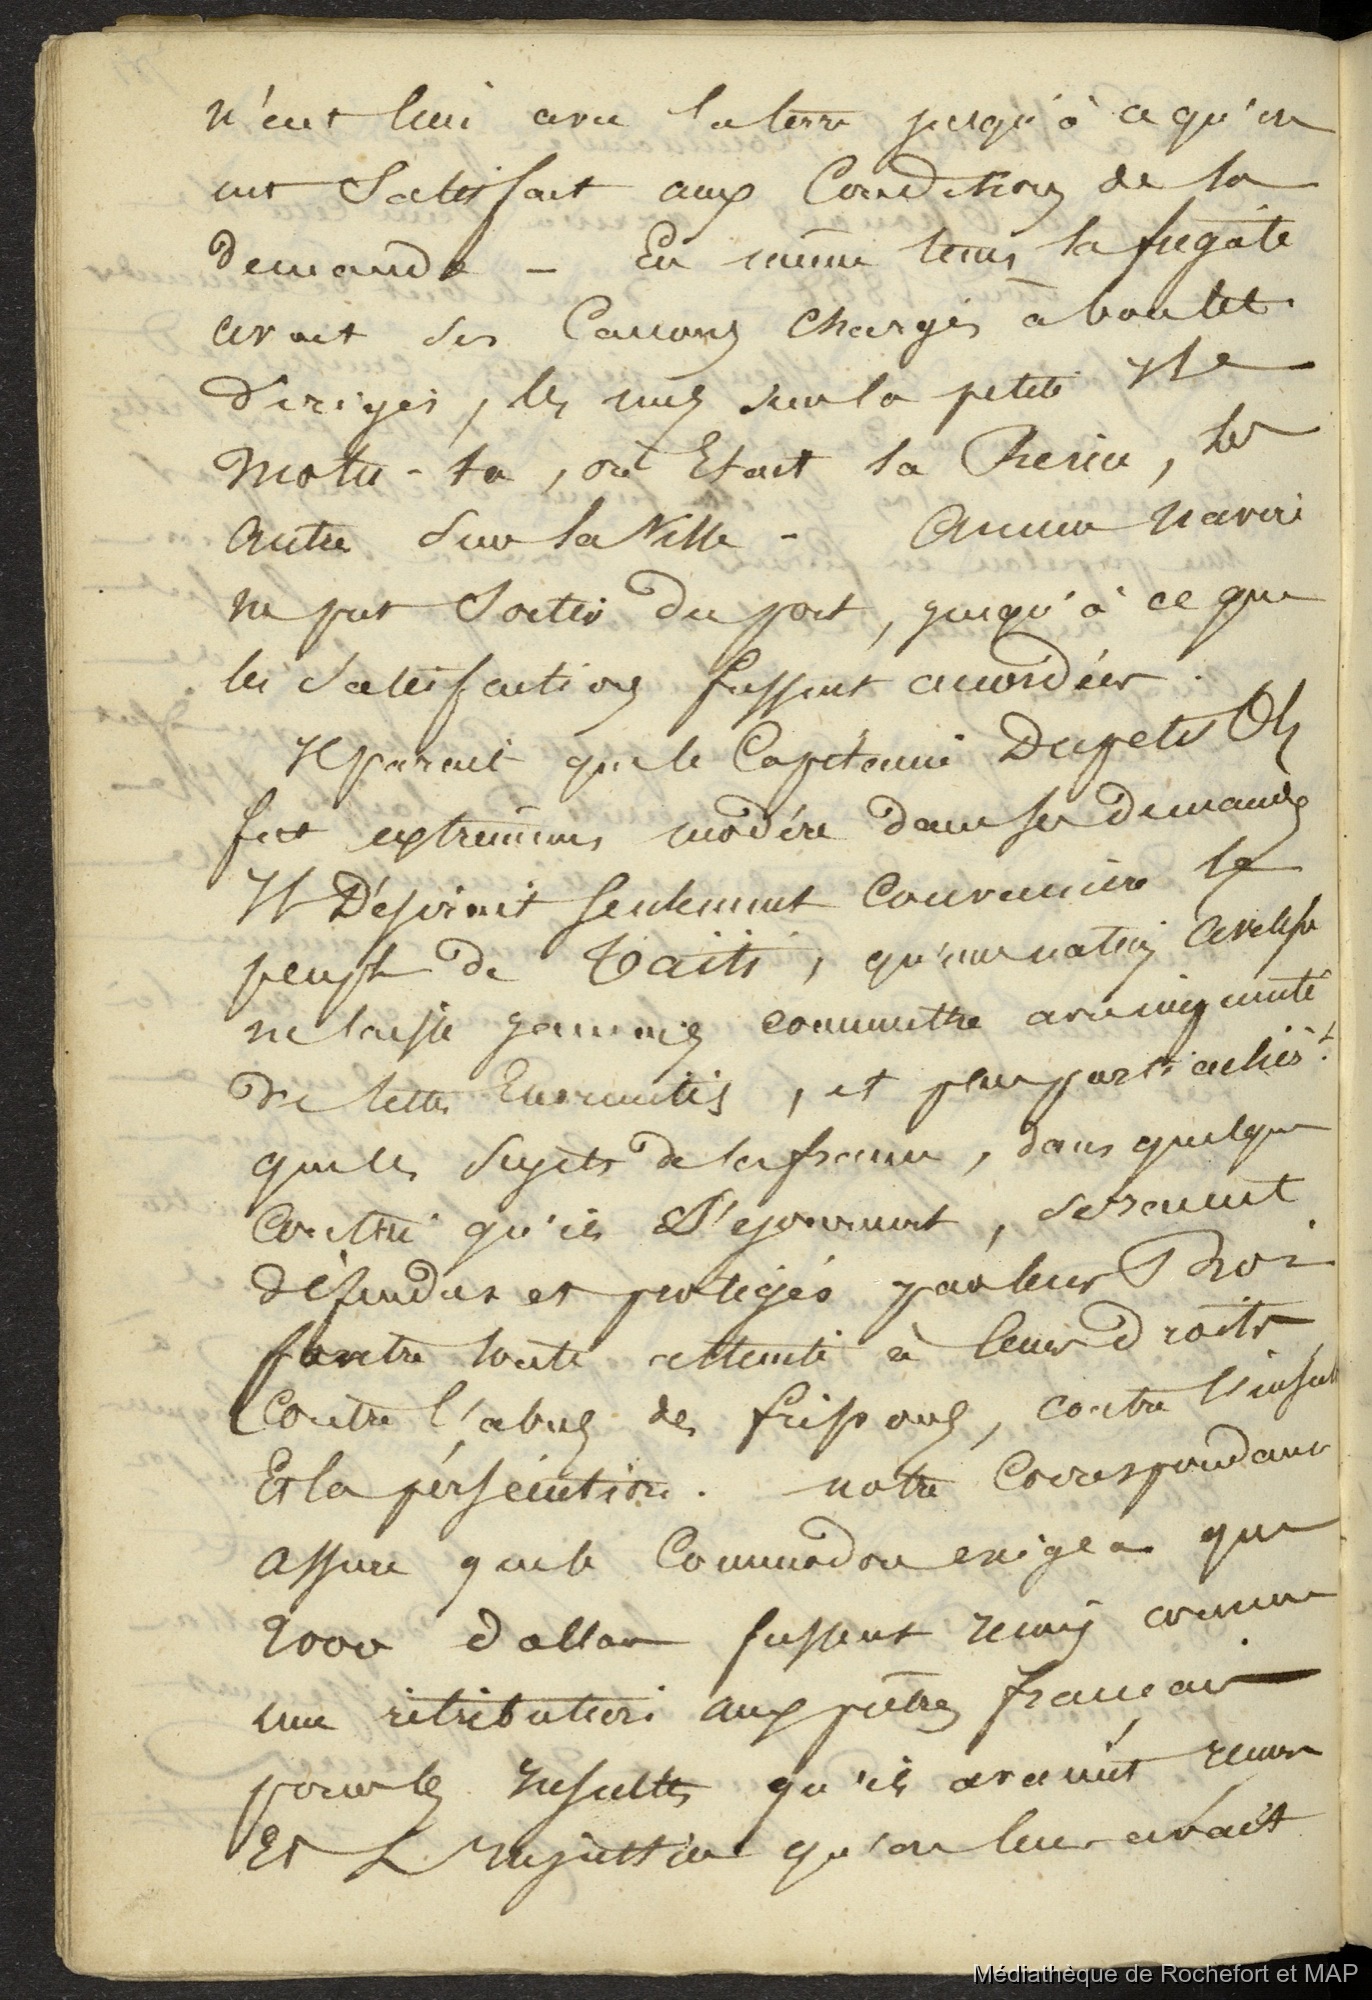 n'eut lieu avec la terre jusqu'à ce qu'on
eut Satisfait aux Conditions de la
demande - En même tems la fregate
avait ses Canons chargés à boulet
dirigés, les uns sur la petite Ile
Motu-ta, où Etait la Reine, les
autre sur la Ville - Aucun navire
ne put Sortir du port, jusqu'à ce que
les Satisfactions fussent accordées.
Il parait que le Capitaine Dupetit Th
fut extremems modéré dans ses demandes
Il Désirait seulement convaincre le
peuple de Taïti, qu'une nation
ne laisse jamais commettre avec impunité
de telles Enormités, et plus particulièrt
que les sujets de la france, dans quelque
Contrée qu'ils Séjournent, seraient
défendus et protégés par leur Roi
contre toute atteinte à leurs droits
Contre l'abus des fripons, contre l'insult
Et la persécution. notre Correspondant
assure que le Commodore exigea que
2000 dollars fussent remis comme
une rétribution aux prêtres français
pour les Insultes qu'ils avaient recues
Et L'Injustice qu'on leur avait
Médiathèque de Rochefort et MAP